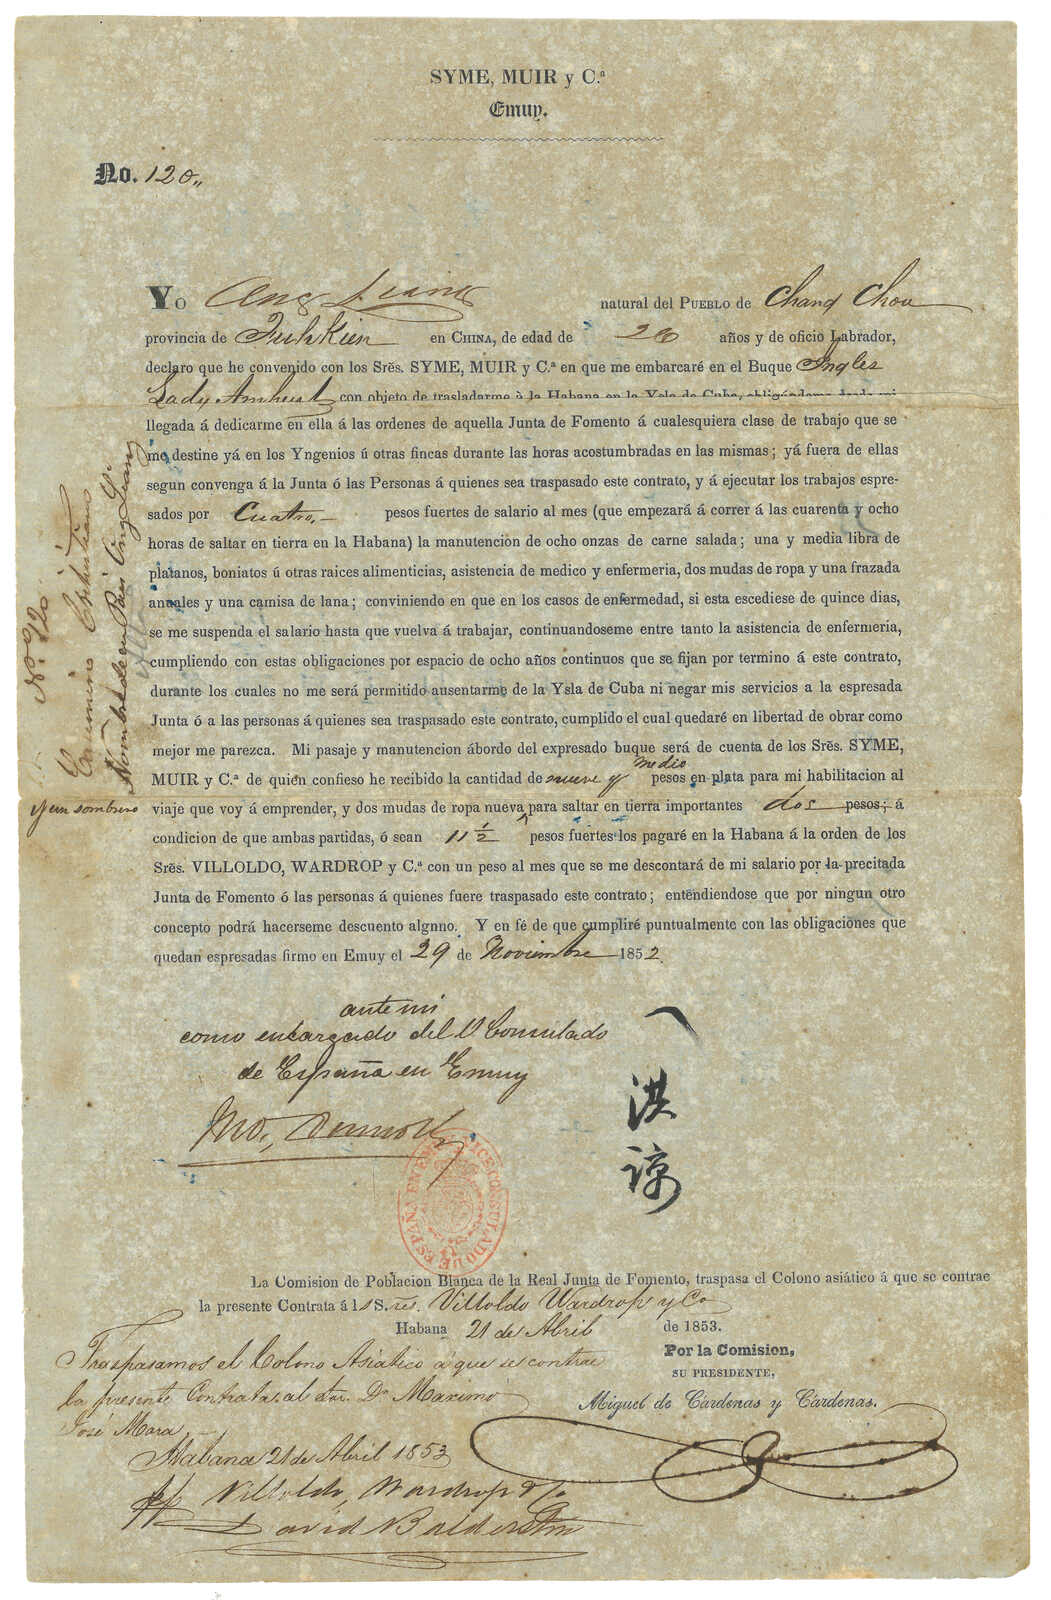 SYME, MUIR y C.ª
Emuy.
No. 120,,
Yo Ang Leang natural del PUEBLO de Chang Chou
provincia de Fuhkien en CHINA, de edad de 26 años y de oficio Labrador,
declaro que he convenido con los Srẽs. SYME, MUIR y C.ª en que me embarcaré en el Buque Ingles
Lady Amherst con objeto de trasladarme à la Habana en la Ysla de Cuba, obligándome desde mi
llegada á dedicarme en ella á las ordenes de aquella Junta de Fomento á cualesquiera clase de trabajo que se
me destine yá en los Yngenios ú otras fincas durante las horas acostumbradas en las mismas; yá fuera de ellas
segun convenga á la Junta ó las Personas á quienes sea traspasado este contrato, y á ejecutar los trabajos espre-
sados por Cuatro.— pesos fuertes de salario al mes (que empezará á correr á las cuarenta y ocho
horas de saltar en tierra en la Habana) la manutencion de ocho onzas de carne salada; una y media libra de
platanos, boniatos ú otras raices alimenticias, asistencia de medico y enfermeria, dos mudas de ropa y una frazada
anuales y una camisa de lana; conviniendo en que en los casos de enfermedad, si esta escediese de quince dias,
se me suspenda el salario hasta que vuelva á trabajar, continuandoseme entre tanto la asistencia de enfermeria,
cumpliendo con estas obligaciones por espacio de ocho años continuos que se fijan por termino á este contrato,
durante los cuales no me será permitido ausentarme de la Ysla de Cuba ni negar mis servicios a la espresada
Junta ó a las personas á quienes sea traspasado este contrato, cumplido el cual quedaré en libertad de obrar como
mejor me parezca. Mi pasaje y manutencion ábordo del expresado buque será de cuenta de los Srẽs. SYME,
MUIR y C.ª de quien confieso he recibido la cantidad de nueve y medio pesos en plata para mi habilitacion al
viaje que voy á emprender, y dos mudas de ropa nueva para saltar en tierra importantes dos pesos; á
y un sombrero
condicion de que ambas partidas, ó sean 11 ½ pesos fuertes los pagaré en la Habana á la orden de los
Srẽs. VILLOLDO, WARDROP y C.ª con un peso al mes que se me descontará de mi salario por la precitada
Junta de Fomento ó las personas á quienes fuere traspasado este contrato; entendiendose que por ningun otro
concepto podrá hacerseme descuento algnno. Y en fé de que cumpliré puntualmente con las obligaciones que
quedan espresadas firmo en Emuy el 29 de Noviembre 1852.
No. 120
Cristiano
Nombre de en Pais Ang Leang
ante mi
como encargado del V Consulado
de España en Emuy
洪
諒
VICE-CONSULADO DE ESPAÑA EN EMUY
La Comision de Poblacion Blanca de la Real Junta de Fomento, traspasa el Colono asiático á que se contrae
la presente Contrata á los S.res. Villoldo Wardrop y Ca
Habana 21 de Abril de 1853.
Por la Comision,
SU PRESIDENTE,
Miguel de Cárdenas y Cárdenas.
Traspasamos el Colono Asiatico á que se contrae
la presente Contrata, al Sor. Dn. Maximo
José Mora
Habana 21 de Abril 1853
pp Villoldo, Wardrop & Co
David Balderston